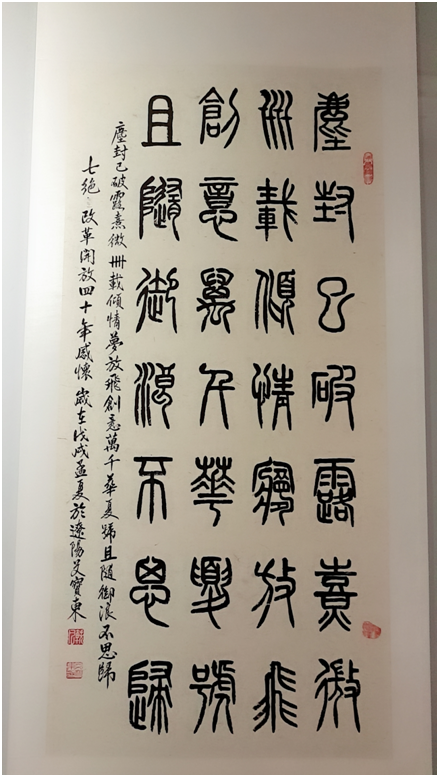 塵封已破露熹微
卌載傾情夢放飛
創意萬千華夏號
且隨御浪不思歸
塵封已破露熹微卌載傾情夢放飛創意萬千華夏號且隨御浪不思歸
七絶 改革開放四十年感懷 歲在戊戌孟夏於遼陽艾寶東